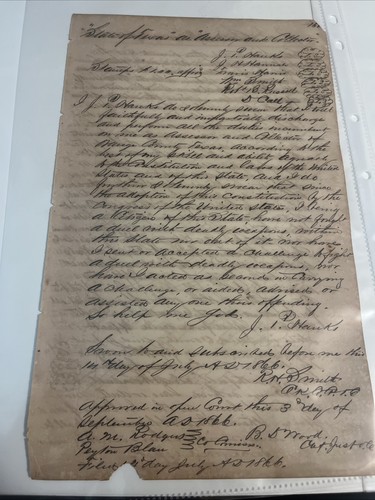 "State of Texas" an Assessor and Collector
J. P. Hanks
J. H. Hannah
Stamps $2.00, affix
Wm Smith
Robt B. Smith
D Call
I J. P. Hanks do solemnly swear that I will
faithfully and impartially discharge
and perform all the duties incumbent
on me as Assessor and Collector of
Orange County Texas, according to the
best of my skill and ability agreeably
to the Constitution and Laws of the United
States and of this State, and I do
further solemnly swear that since
the adoption of this Constitution by the
Congress of the United States, I being
a Citizen of this State, have not fought
a duel with deadly weapons, within
this State nor out of it nor have
I sent or accepted a Challenge to fight
a duel with deadly weapons, nor
have I acted as Second in Carrying
a Challenge, or aided, advised or
assisted any one thus offending.
So help me God. J. P. Hanks
Sworn to and subscribed before me this
14th day of July A D 1866.
Smith
Approved in open Court this 3rd day of
September A D 1866.
A. M. Rodgers B. D Wood
Peyton Bland Co Commiss
Filed day July A D 1866.